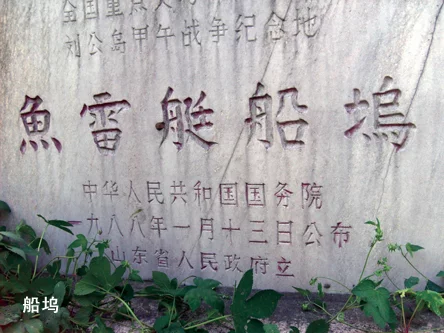 全国重点文
刘公岛甲午战争纪念地
魚雷艇船塢
中华人民共和国国务院
九八八年一月十三日公布
山东省人民政府立
船坞